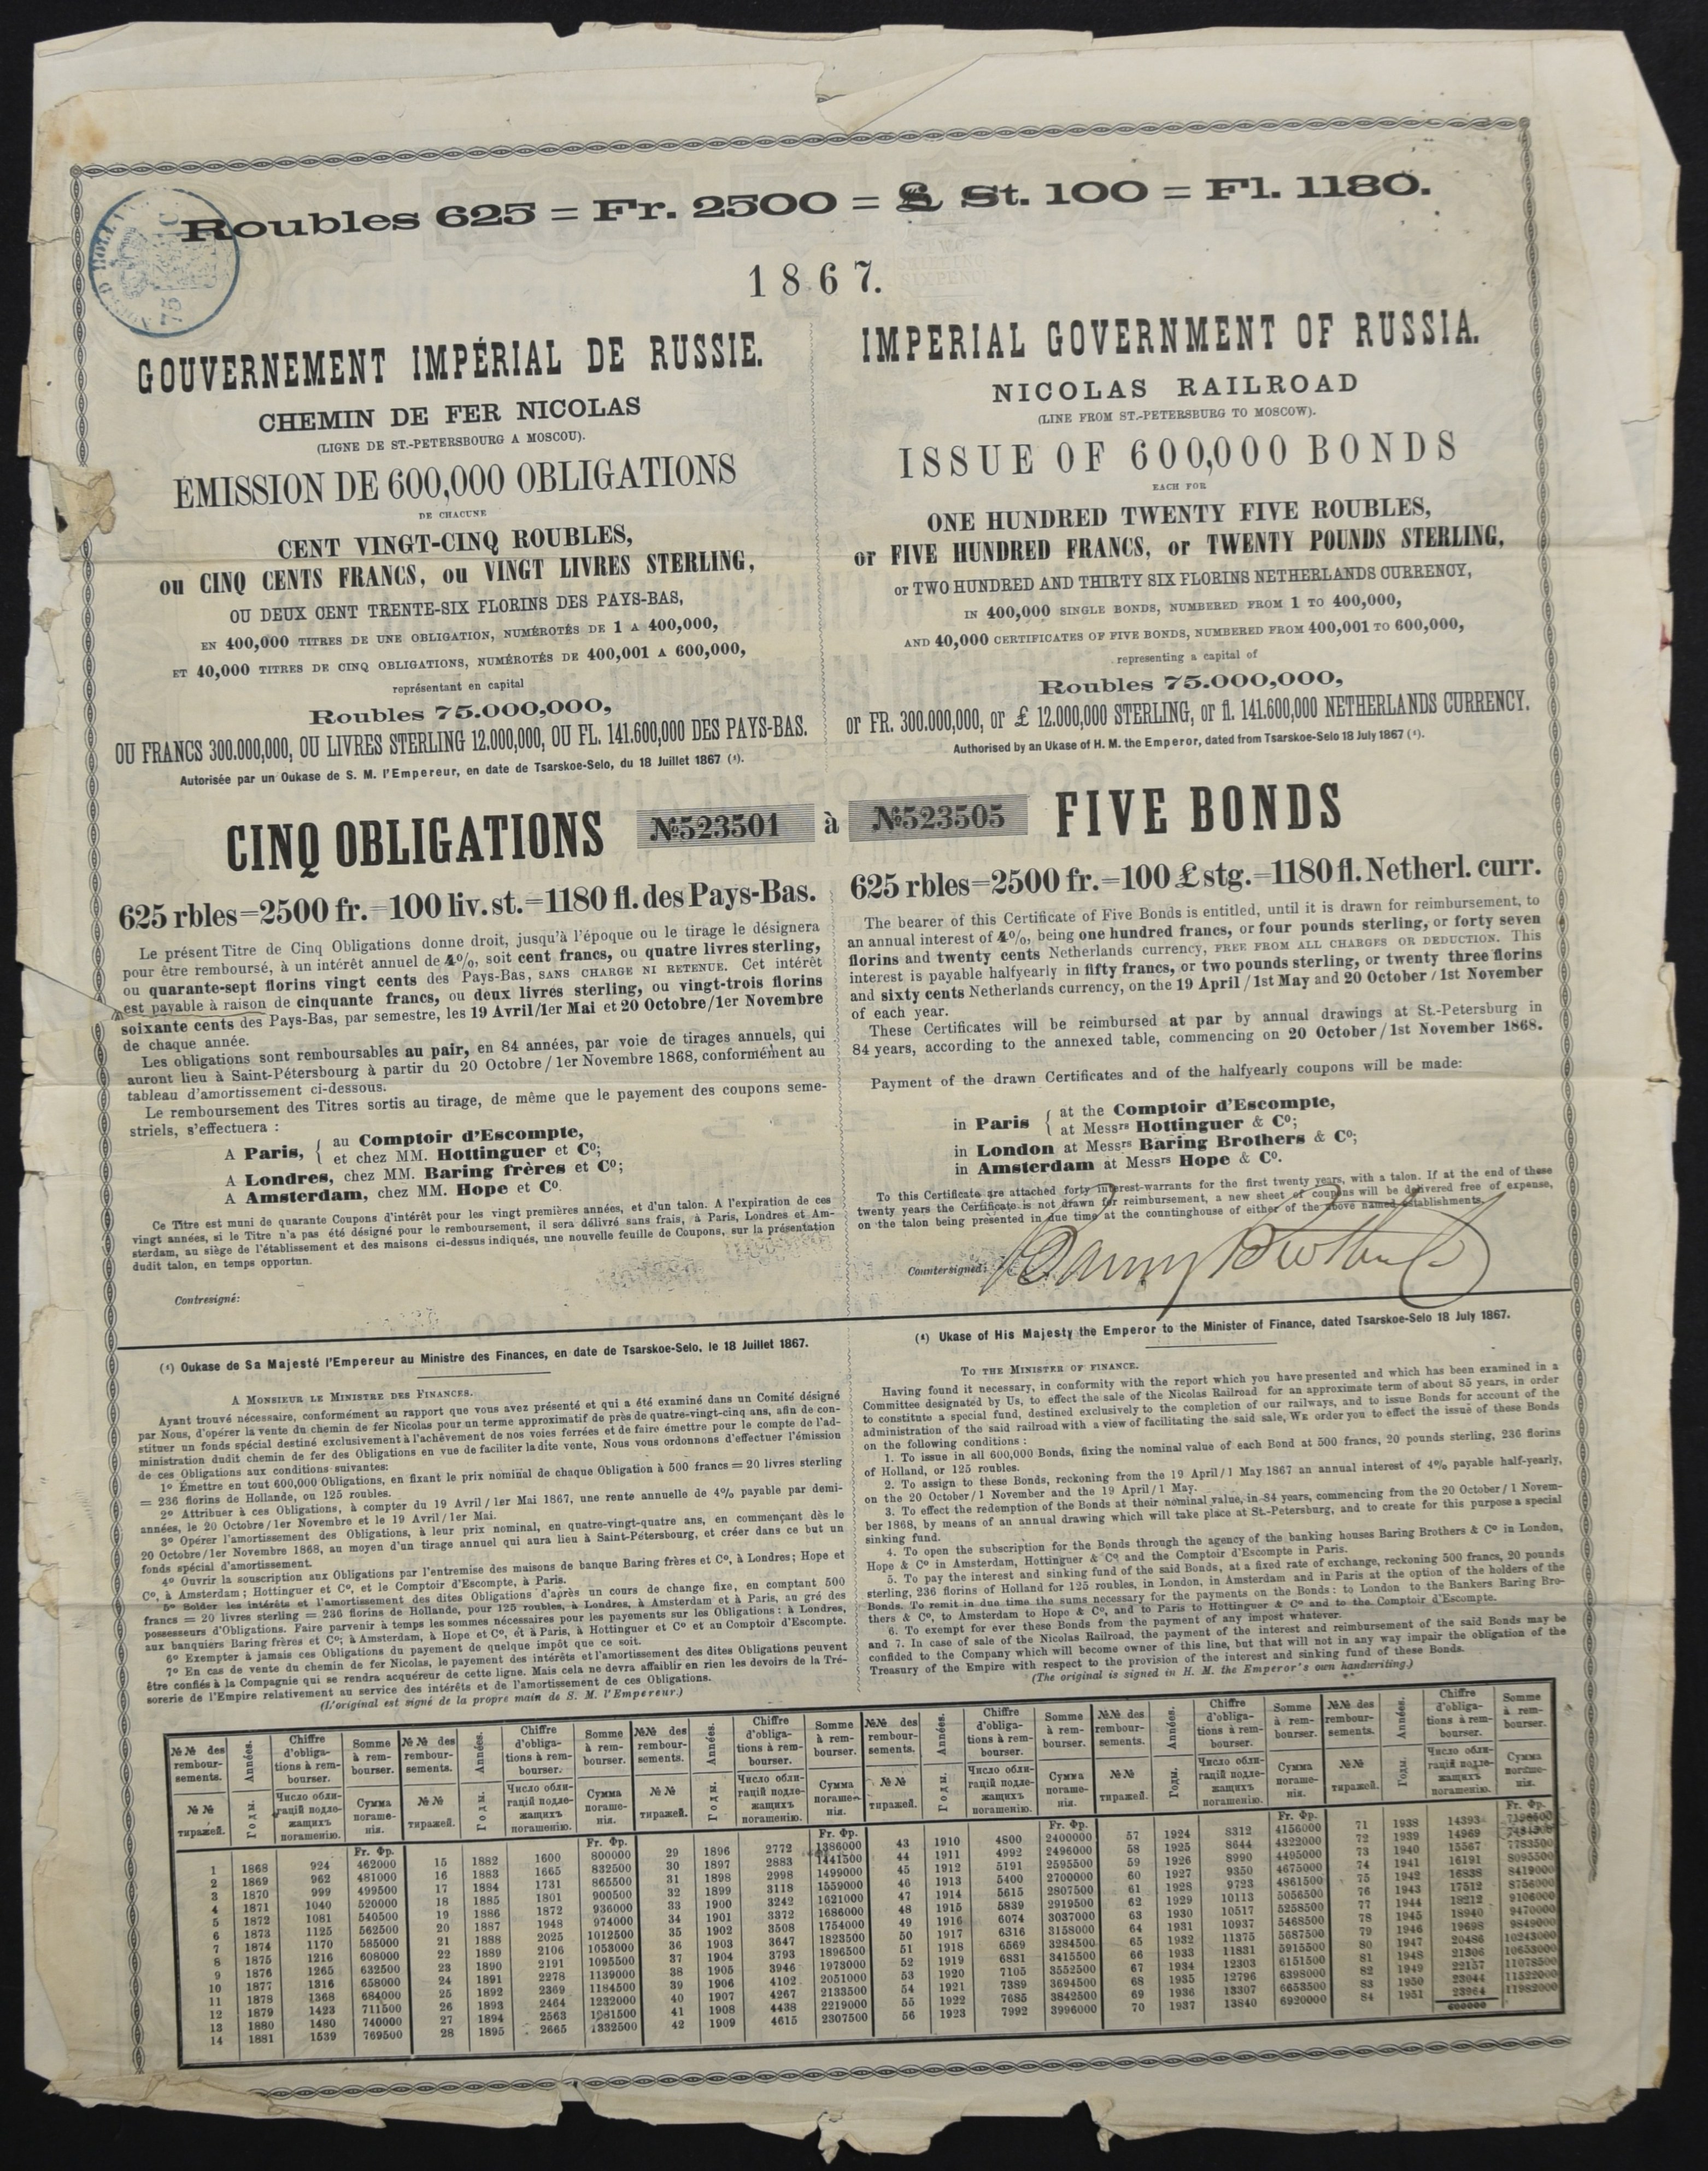 Roubles 625 = Fr. 2500 = £ St. 100 = Fl. 1180.
1867.
GOUVERNEMENT IMPÉRIAL DE RUSSIE.
CHEMIN DE FER NICOLAS
(LIGNE DE ST.-PETERSBOURG A MOSCOU).
ÉMISSION DE 600,000 OBLIGATIONS
DE CHACUNE
CENT VINGT-CINQ ROUBLES,
ou CINQ CENTS FRANCS, ou VINGT LIVRES STERLING,
OU DEUX CENT TRENTE-SIX FLORINS DES PAYS-BAS,
EN 400,000 TITRES DE UNE OBLIGATION, NUMÉROTÉS DE 1 A 400,000,
ET 40,000 TITRES DE CINQ OBLIGATIONS, NUMÉROTÉS DE 400,001 A 600,000,
représentant en capital
Roubles 75.000,000,
OU FRANCS 300.000,000, OU LIVRES STERLING 12.000,000, OU FL. 141.600,000 DES PAYS-BAS.
Autorisée par un Oukase de S. M. l'Empereur, en date de Tsarskoe-Selo, du 18 Juillet 1867 (¹).
IMPERIAL GOVERNMENT OF RUSSIA.
NICOLAS RAILROAD
(LINE FROM ST.-PETERSBURG TO MOSCOW).
ISSUE OF 600,000 BONDS
EACH FOR
ONE HUNDRED TWENTY FIVE ROUBLES,
or FIVE HUNDRED FRANCS, or TWENTY POUNDS STERLING,
or TWO HUNDRED AND THIRTY SIX FLORINS NETHERLANDS CURRENCY,
IN 400,000 SINGLE BONDS, NUMBERED FROM 1 TO 400,000,
AND 40,000 CERTIFICATES OF FIVE BONDS, NUMBERED FROM 400,001 TO 600,000,
representing a capital of
Roubles 75.000,000,
or FR. 300.000,000, or £ 12.000,000 STERLING, or fl. 141.600,000 NETHERLANDS CURRENCY.
Authorised by an Ukase of H. M. the Emperor, dated from Tsarskoe-Selo 18 July 1867 (¹).
CINQ OBLIGATIONS №523501 à №523505 FIVE BONDS
625 rbles=2500 fr.=100 liv. st.=1180 fl. des Pays-Bas.
Le présent Titre de Cinq Obligations donne droit, jusqu'à l'époque ou le tirage le désignera
pour être remboursé, à un intérêt annuel de 4%, soit cent francs, ou quatre livres sterling,
ou quarante-sept florins vingt cents des Pays-Bas, SANS CHARGE NI RETENUE. Cet intérêt
est payable à raison de cinquante francs, ou deux livres sterling, ou vingt-trois florins
soixante cents des Pays-Bas, par semestre, les 19 Avril/1er Mai et 20 Octobre/1er Novembre
de chaque année.
Les obligations sont remboursables au pair, en 84 années, par voie de tirages annuels, qui
auront lieu à Saint-Pétersbourg à partir du 20 Octobre/1er Novembre 1868, conformément au
tableau d'amortissement ci-dessous.
Le remboursement des Titres sortis au tirage, de même que le payement des coupons seme-
striels, s'effectuera :
A Paris, { au Comptoir d'Escompte,
et chez MM. Hottinguer et Cº;
A Londres, chez MM. Baring frères et Cº;
A Amsterdam, chez MM. Hope et Cº.
Ce Titre est muni de quarante Coupons d'intérêt pour les vingt premières années, et d'un talon. A l'expiration de ces
vingt années, si le Titre n'a pas été désigné pour le remboursement, il sera délivré sans frais, à Paris, Londres et Am-
sterdam, au siège de l'établissement et des maisons ci-dessus indiqués, une nouvelle feuille de Coupons, sur la présentation
dudit talon, en temps opportun.
Contresigné:
625 rbles=2500 fr.=100 £ stg.=1180 fl. Netherl. curr.
The bearer of this Certificate of Five Bonds is entitled, until it is drawn for reimbursement, to
an annual interest of 4%, being one hundred francs, or four pounds sterling, or forty seven
florins and twenty cents Netherlands currency, FREE FROM ALL CHARGES OR DEDUCTION. This
interest is payable halfyearly in fifty francs, or two pounds sterling, or twenty three florins
and sixty cents Netherlands currency, on the 19 April/1st May and 20 October/1st November
of each year.
These Certificates will be reimbursed at par by annual drawings at St.-Petersburg in
84 years, according to the annexed table, commencing on 20 October/1st November 1868.
Payment of the drawn Certificates and of the halfyearly coupons will be made:
in Paris { at the Comptoir d'Escompte,
at Messrs Hottinguer & Cº;
in London at Messrs Baring Brothers & Cº;
in Amsterdam at Messrs Hope & Cº.
To this Certificate are attached forty interest-warrants for the first twenty years, with a talon. If at the end of these
twenty years the Certificate is not drawn for reimbursement, a new sheet of coupons will be delivered free of expense,
on the talon being presented in due time at the countinghouse of either of the above named establishments.
Countersigned: Baring Brothers
(¹) Oukase de Sa Majesté l'Empereur au Ministre des Finances, en date de Tsarskoe-Selo, le 18 Juillet 1867.
A MONSIEUR LE MINISTRE DES FINANCES.
Ayant trouvé nécessaire, conformément au rapport que vous avez présenté et qui a été examiné dans un Comité désigné
par Nous, d'opérer la vente du chemin de fer Nicolas pour un terme approximatif de près de quatre-vingt-cinq ans, afin de con-
stituer un fonds spécial destiné exclusivement à l'achèvement de nos voies ferrées et de faire émettre pour le compte de l'ad-
ministration dudit chemin de fer des Obligations en vue de faciliter ladite vente, Nous vous ordonnons d'effectuer l'émission
de ces Obligations aux conditions suivantes:
1º Émettre en tout 600,000 Obligations, en fixant le prix nominal de chaque Obligation à 500 francs = 20 livres sterling
= 236 florins de Hollande, ou 125 roubles.
2º Attribuer à ces Obligations, à compter du 19 Avril/1er Mai 1867, une rente annuelle de 4% payable par demi-
années, le 20 Octobre/1er Novembre et le 19 Avril/1er Mai.
3º Opérer l'amortissement des Obligations, à leur prix nominal, en quatre-vingt-quatre ans, en commençant dès le
20 Octobre/1er Novembre 1868, au moyen d'un tirage annuel qui aura lieu à Saint-Pétersbourg, et créer dans ce but un
fonds spécial d'amortissement.
4º Ouvrir la souscription aux Obligations par l'entremise des maisons de banque Baring frères et Cº, à Londres; Hope et
Cº, à Amsterdam; Hottinguer et Cº, et le Comptoir d'Escompte, à Paris.
5º Solder les intérêts et l'amortissement des dites Obligations d'après un cours de change fixe, en comptant 500
francs = 20 livres sterling = 236 florins de Hollande, pour 125 roubles, à Londres, à Amsterdam et à Paris, au gré des
possesseurs d'Obligations. Faire parvenir à temps les sommes nécessaires pour les payements sur les Obligations : à Londres,
aux banquiers Baring frères et Cº; à Amsterdam, à Hope et Cº, et à Paris, à Hottinguer et Cº et au Comptoir d'Escompte.
6º Exempter à jamais ces Obligations du payement de quelque impôt que ce soit.
7º En cas de vente du chemin de fer Nicolas, le payement des intérêts et l'amortissement des dites Obligations peuvent
être confiés à la Compagnie qui se rendra acquéreur de cette ligne. Mais cela ne devra affaiblir en rien les devoirs de la Tré-
sorerie de l'Empire relativement au service des intérêts et de l'amortissement de ces Obligations.
(L'original est signé de la propre main de S. M. l'Empereur.)
(¹) Ukase of His Majesty the Emperor to the Minister of Finance, dated Tsarskoe-Selo 18 July 1867.
TO THE MINISTER OF FINANCE.
Having found it necessary, in conformity with the report which you have presented and which has been examined in a
Committee designated by Us, to effect the sale of the Nicolas Railroad for an approximate term of about 85 years, in order
to constitute a special fund, destined exclusively to the completion of our railways, and to issue Bonds for account of the
administration of the said railroad with a view of facilitating the said sale, WE order you to effect the issue of these Bonds
on the following conditions :
1. To issue in all 600,000 Bonds, fixing the nominal value of each Bond at 500 francs, 20 pounds sterling, 236 florins
of Holland, or 125 roubles.
2. To assign to these Bonds, reckoning from the 19 April/1 May 1867 an annual interest of 4% payable half-yearly,
on the 20 October/1 November and the 19 April/1 May.
3. To effect the redemption of the Bonds at their nominal value, in 84 years, commencing from the 20 October/1 Novem-
ber 1868, by means of an annual drawing which will take place at St.-Petersburg, and to create for this purpose a special
sinking fund.
4. To open the subscription for the Bonds through the agency of the banking houses Baring Brothers & Cº in London,
Hope & Cº in Amsterdam, Hottinguer & Cº and the Comptoir d'Escompte in Paris.
5. To pay the interest and sinking fund of the said Bonds, at a fixed rate of exchange, reckoning 500 francs, 20 pounds
sterling, 236 florins of Holland for 125 roubles, in London, in Amsterdam and in Paris at the option of the holders of the
Bonds. To remit in due time the sums necessary for the payments on the Bonds : to London to the Bankers Baring Bro-
thers & Cº, to Amsterdam to Hope & Cº, and to Paris to Hottinguer & Cº and to the Comptoir d'Escompte.
6. To exempt for ever these Bonds from the payment of any impost whatever.
and 7. In case of sale of the Nicolas Railroad, the payment of the interest and reimbursement of the said Bonds may be
confided to the Company which will become owner of this line, but that will not in any way impair the obligation of the
Treasury of the Empire with respect to the provision of the interest and sinking fund of these Bonds.
(The original is signed in H. M. the Emperor's own handwriting.)
№№ des remboursements. Années. Chiffre d'obligations à rembourser. Somme à rembourser.
№№ тиражей. Годы. Число облигацій подлежащихъ погашенію. Сумма погашенія.
Fr. Фр.
1 1868 924 462000
2 1869 962 481000
3 1870 999 499500
4 1871 1040 520000
5 1872 1081 540500
6 1873 1125 562500
7 1874 1170 585000
8 1875 1216 608000
9 1876 1265 632500
10 1877 1316 658000
11 1878 1368 684000
12 1879 1423 711500
13 1880 1480 740000
14 1881 1539 769500
№№ des remboursements. Années. Chiffre d'obligations à rembourser. Somme à rembourser.
№№ тиражей. Годы. Число облигацій подлежащихъ погашенію. Сумма погашенія.
Fr. Фр.
15 1882 1600 800000
16 1883 1665 832500
17 1884 1731 865500
18 1885 1801 900500
19 1886 1872 936000
20 1887 1948 974000
21 1888 2025 1012500
22 1889 2106 1053000
23 1890 2191 1095500
24 1891 2278 1139000
25 1892 2369 1184500
26 1893 2464 1232000
27 1894 2563 1281500
28 1895 2665 1332500
№№ des remboursements. Années. Chiffre d'obligations à rembourser. Somme à rembourser.
№№ тиражей. Годы. Число облигацій подлежащихъ погашенію. Сумма погашенія.
Fr. Фр.
29 1896 2772 1386000
30 1897 2883 1441500
31 1898 2998 1499000
32 1899 3118 1559000
33 1900 3242 1621000
34 1901 3372 1686000
35 1902 3508 1754000
36 1903 3647 1823500
37 1904 3793 1896500
38 1905 3946 1973000
39 1906 4102 2051000
40 1907 4267 2133500
41 1908 4438 2219000
42 1909 4615 2307500
№№ des remboursements. Années. Chiffre d'obligations à rembourser. Somme à rembourser.
№№ тиражей. Годы. Число облигацій подлежащихъ погашенію. Сумма погашенія.
Fr. Фр.
43 1910 4800 2400000
44 1911 4992 2496000
45 1912 5191 2595500
46 1913 5400 2700000
47 1914 5615 2807500
48 1915 5839 2919500
49 1916 6074 3037000
50 1917 6316 3158000
51 1918 6569 3284500
52 1919 6831 3415500
53 1920 7105 3552500
54 1921 7389 3694500
55 1922 7685 3842500
56 1923 7992 3996000
№№ des remboursements. Années. Chiffre d'obligations à rembourser. Somme à rembourser.
№№ тиражей. Годы. Число облигацій подлежащихъ погашенію. Сумма погашенія.
Fr. Фр.
57 1924 8312 4156000
58 1925 8644 4322000
59 1926 8990 4495000
60 1927 9350 4675000
61 1928 9723 4861500
62 1929 10113 5056500
63 1930 10517 5258500
64 1931 10937 5468500
65 1932 11375 5687500
66 1933 11831 5915500
67 1934 12303 6151500
68 1935 12796 6398000
69 1936 13307 6653500
70 1937 13840 6920000
№№ des remboursements. Années. Chiffre d'obligations à rembourser. Somme à rembourser.
№№ тиражей. Годы. Число облигацій подлежащихъ погашенію. Сумма погашенія.
Fr. Фр.
71 1938 14393 7196500
72 1939 14969 7484500
73 1940 15567 7783500
74 1941 16191 8095500
75 1942 16838 8419000
76 1943 17512 8756000
77 1944 18212 9106000
78 1945 18940 9470000
79 1946 19698 9849000
80 1947 20486 10243000
81 1948 21306 10653000
82 1949 22157 11078500
83 1950 23044 11522000
84 1951 23964 11982000
600000